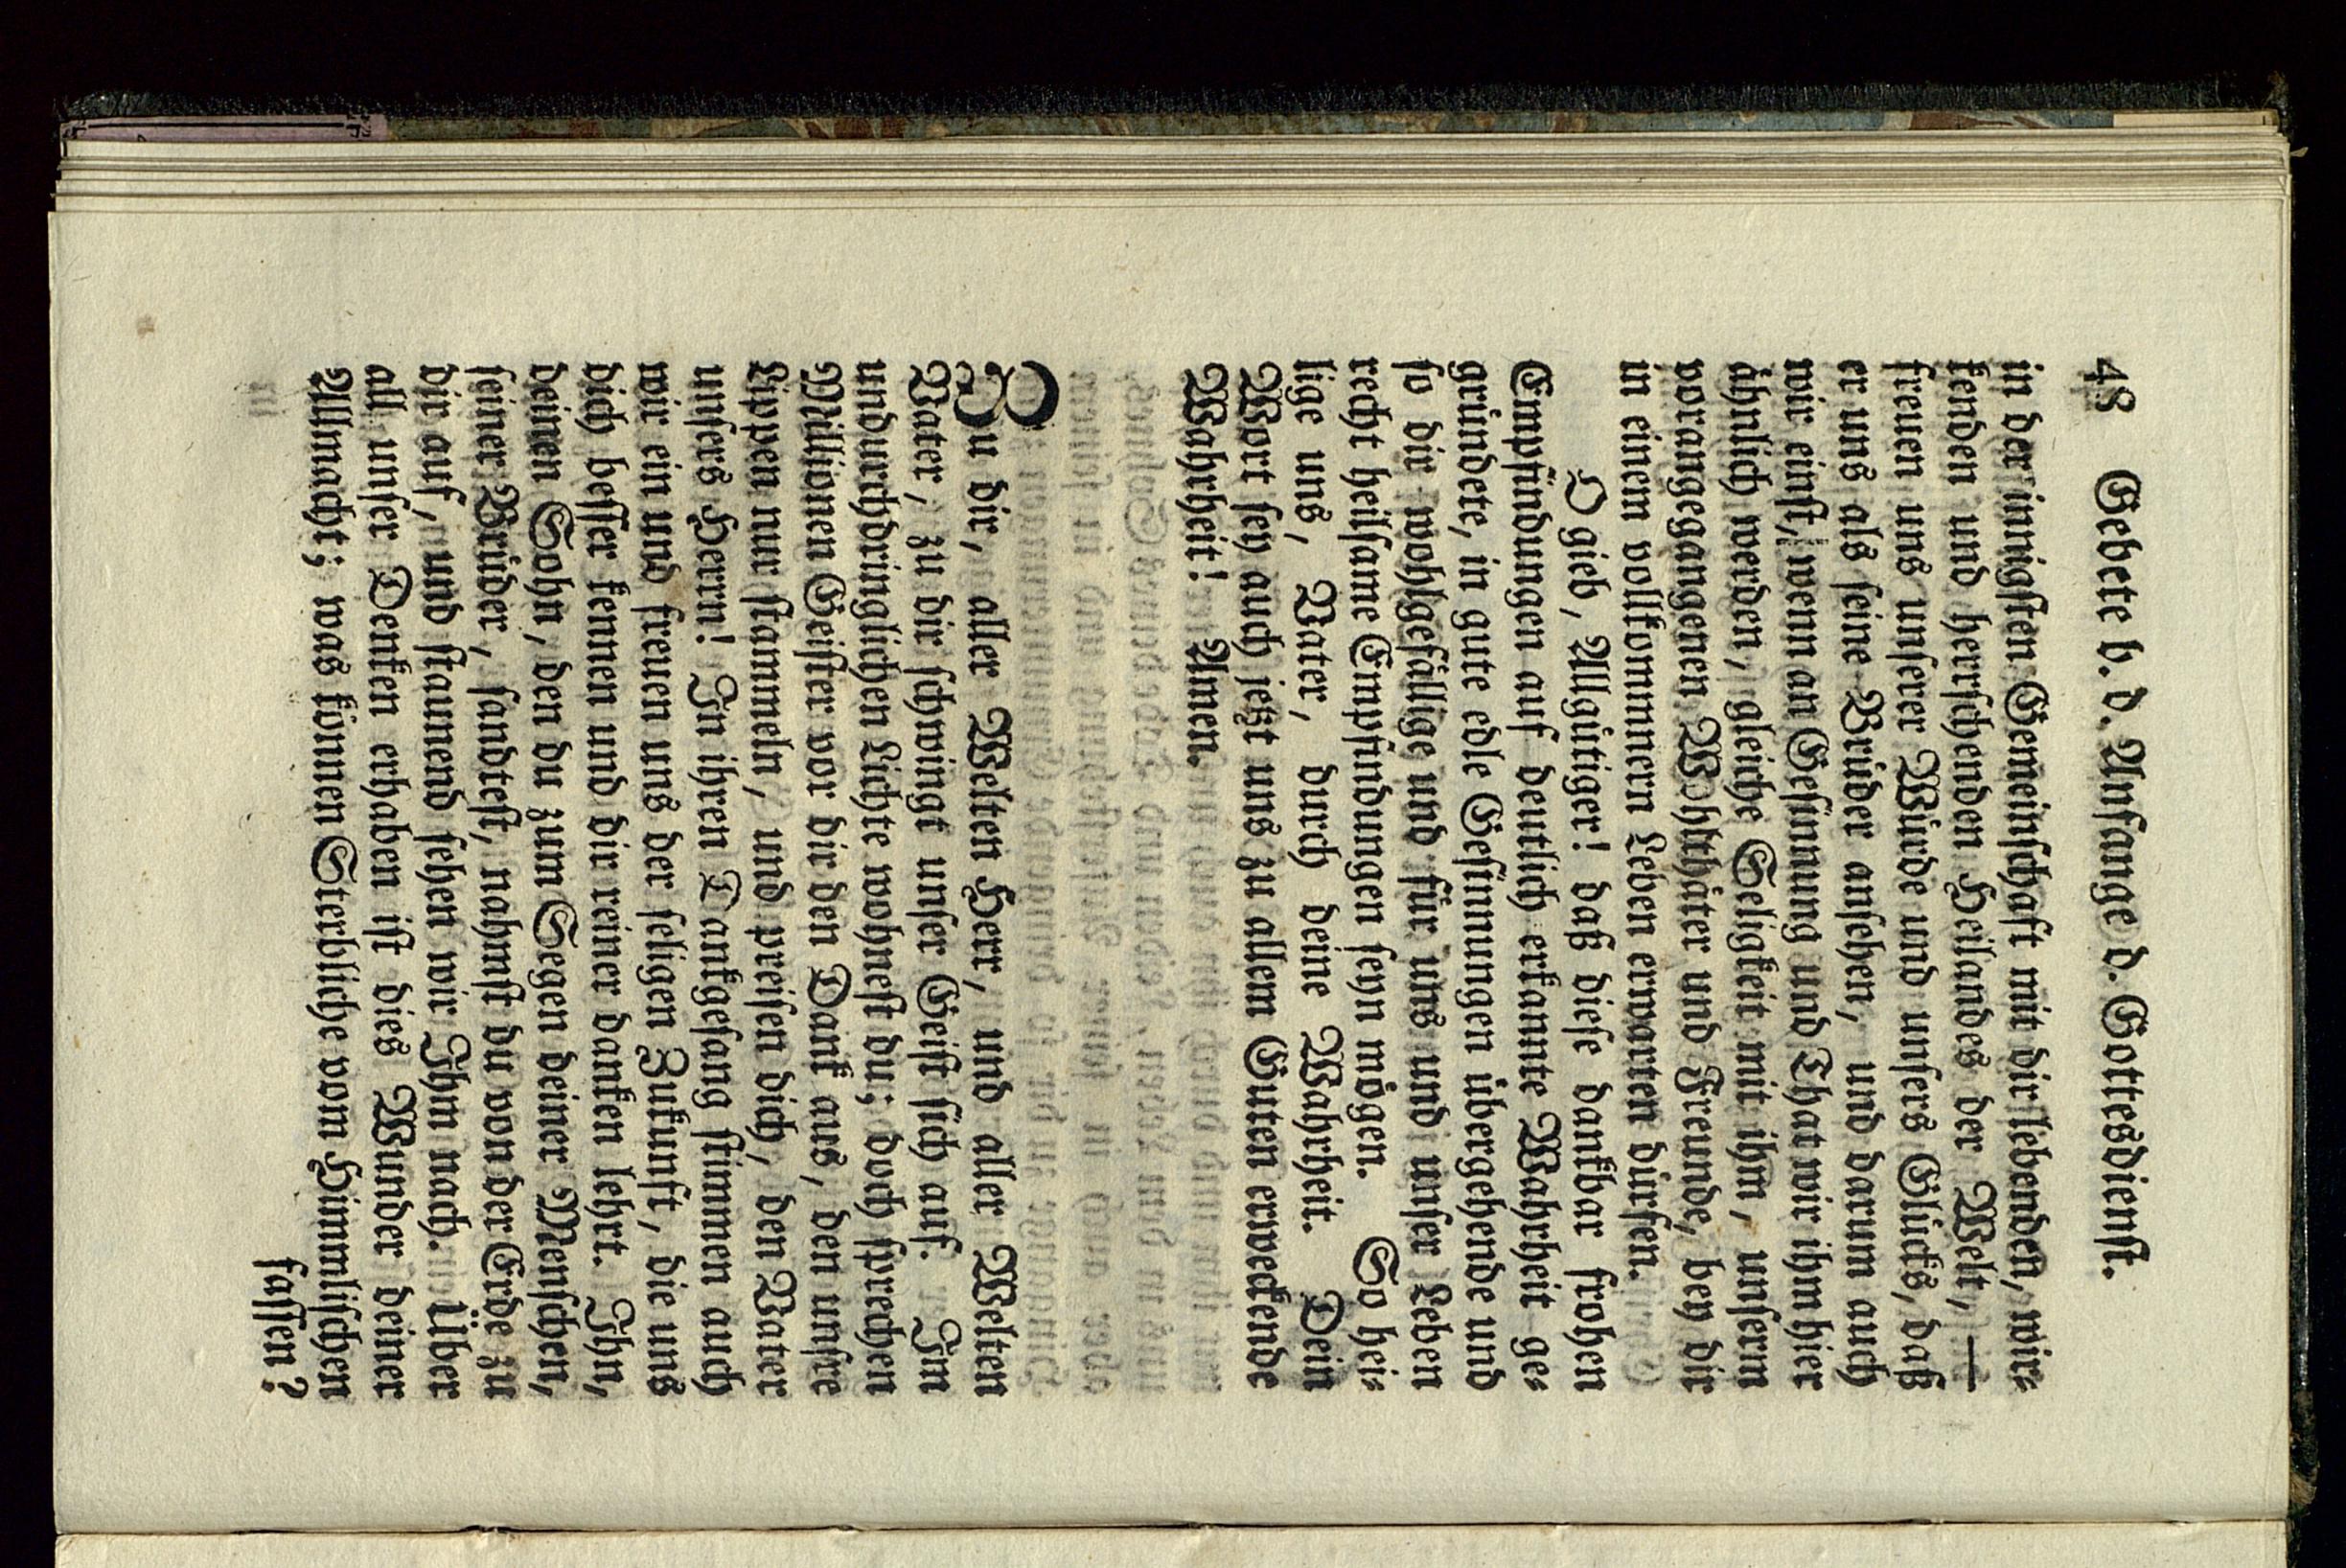 48 Gebete b. d. Anfange d. Gottesdienst.
in der innigsten Gemeinschaft mit dir lebenden, wir⸗
kenden und herrschenden Heilandes der Welt, —
freuen uns unserer Würde und unsers Glücks, daß
er uns als seine Brüder ansehen, und darum auch
wir einst, wenn an Gesinnung und That wir ihm hier
ähnlich werden, gleiche Seligkeit mit ihm, unserm
vorangegangenen Wohlthäter und Freunde, bey dir
in einem vollkommnern Leben erwarten dürfen.
O gieb, Allgütiger! daß diese dankbar frohen
Empfindungen auf deutlich erkannte Wahrheit ge⸗
gründete, in gute edle Gesinnungen übergehende und
so dir wohlgefällige und für uns und unser Leben
recht heilsame Empfindungen seyn mögen. So hei⸗
lige uns, Vater, durch deine Wahrheit. Dein
Wort sey auch jetzt uns zu allem Guten erweckende
Wahrheit! Amen.
Zu dir, aller Welten Herr, und aller Welten
Vater, zu dir schwingt unser Geist sich auf. Im
undurchdringlichen Lichte wohnest du; doch sprechen
Millionen Geister vor dir den Dank aus, den unsre
Lippen nur stammeln, und preisen dich, den Vater
unsers Herrn! In ihren Dankgesang stimmen auch
wir ein und freuen uns der seligen Zukunft, die uns
dich besser kennen und dir reiner danken lehrt. Ihn,
deinen Sohn, den du zum Segen deiner Menschen,
seiner Brüder, sandtest, nahmst du von der Erde zu
dir auf, und staunend sehen wir Ihm nach. Über
all unser Denken erhaben ist dies Wunder deiner
Allmacht; was können Sterbliche vom Himmlischen
fassen?